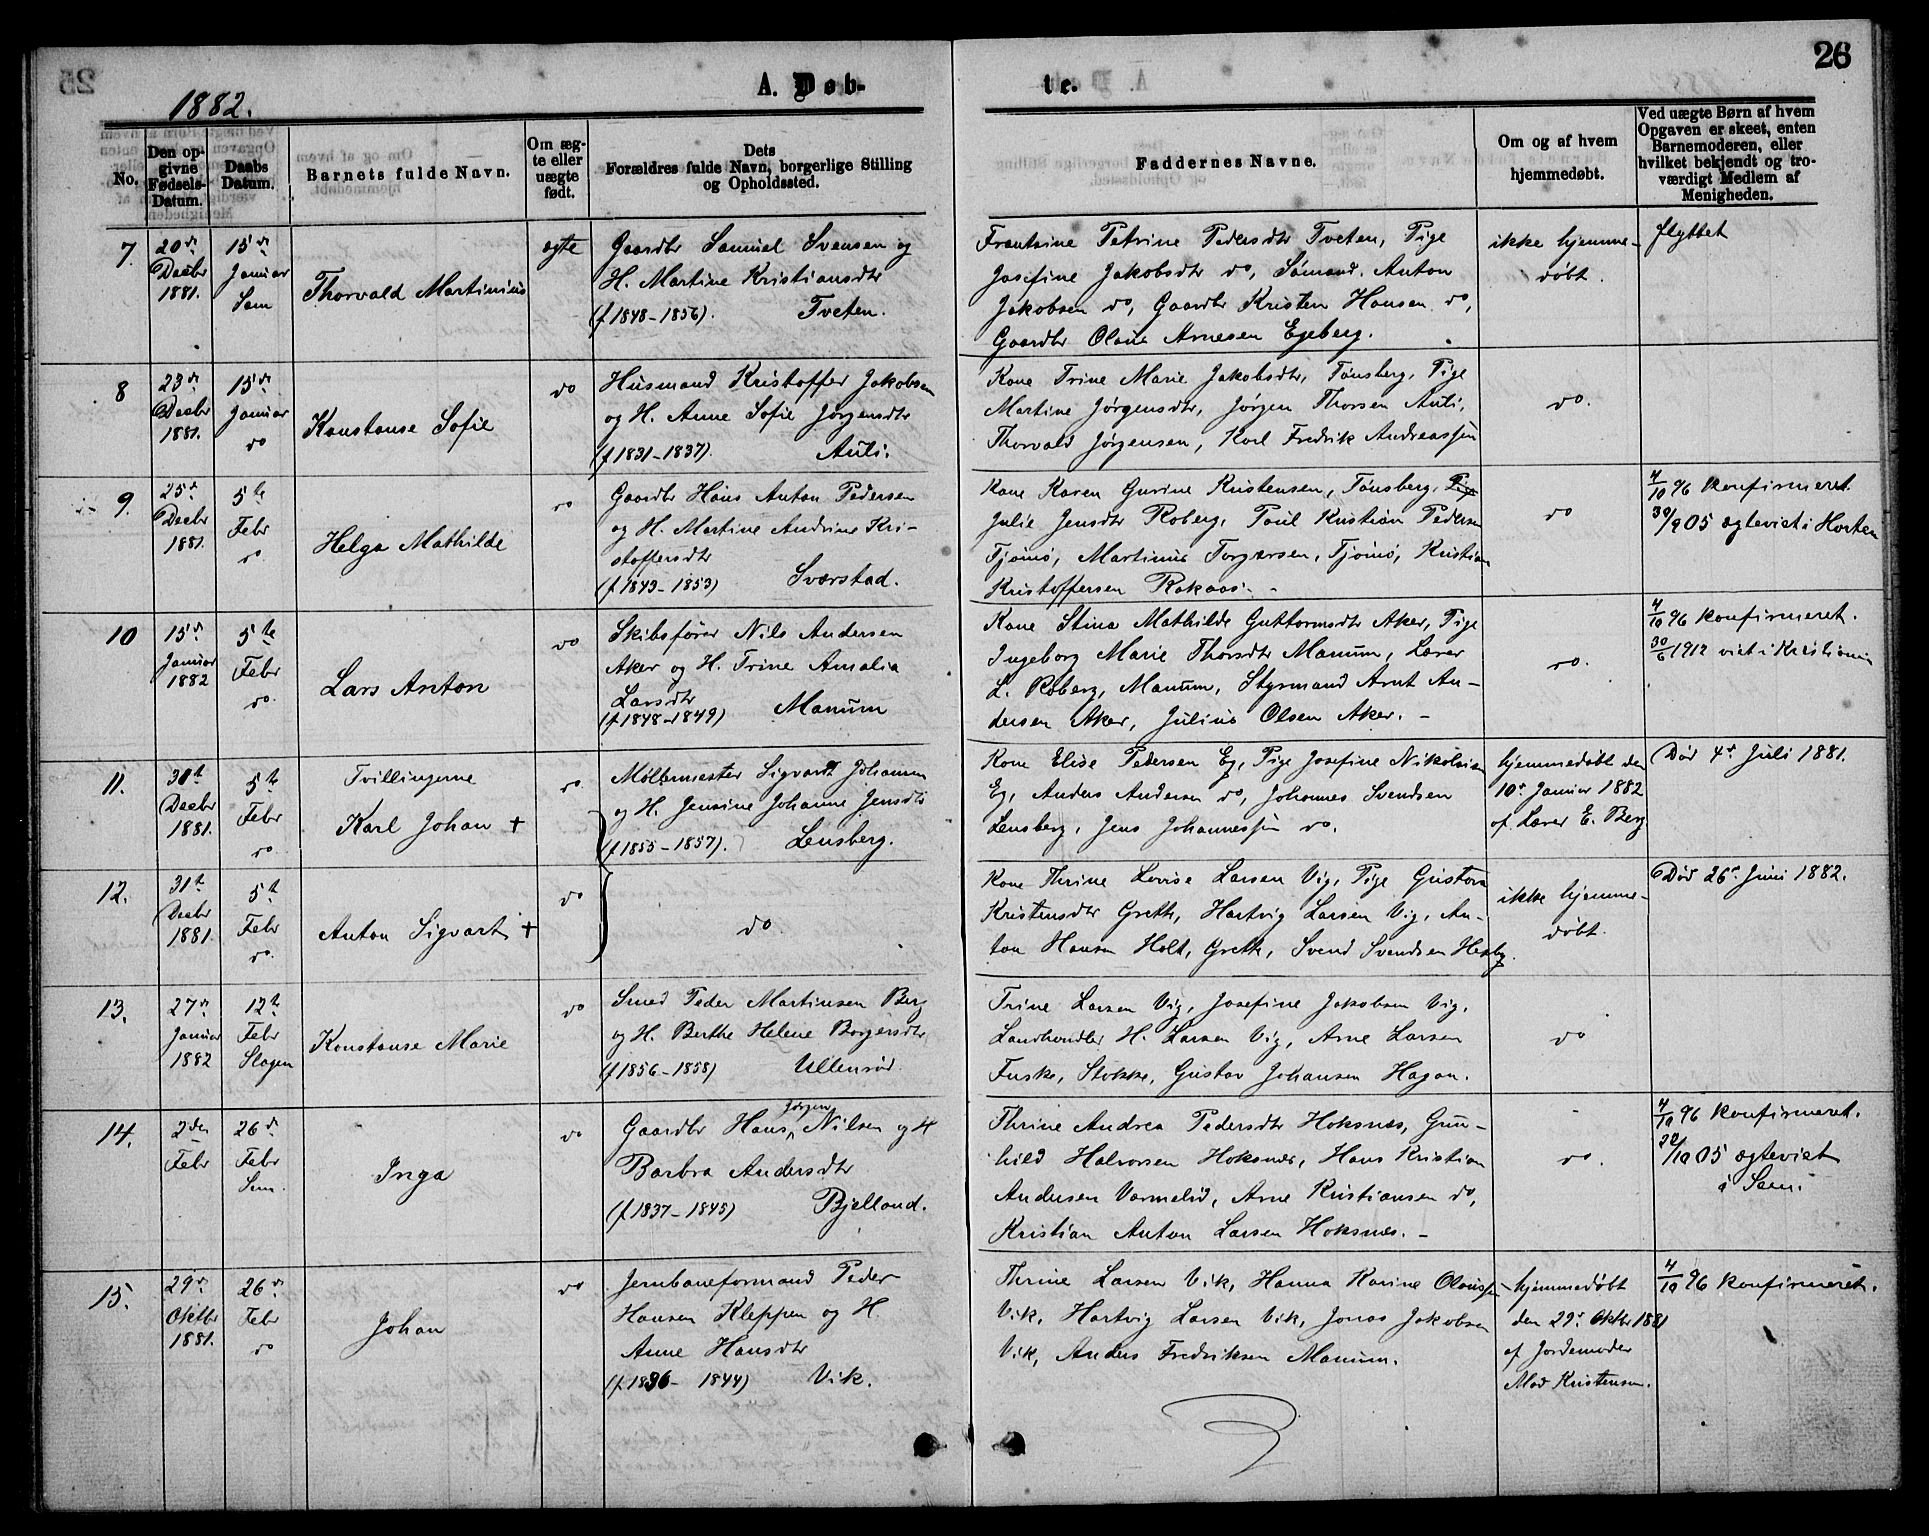 26
1882.
A. Døb-
te.
No.
Den op-
givne
Fødsels-
Datum.
Daabs
Datum.
Barnets fulde Navn.
Om æg-
te eller
uægte
født.
Dets
Forældres fulde Navn, borgerlige Stilling
og Opholdssted.
Faddernes Navne.
Om og af hvem
hjemmedøbt.
Ved uægte Børn af hvem
Opgaven er skeet, enten
Barnemoderen, eller
hvilket bekjendt og tro-
værdigt Medlem af
Menigheden.
7.
20de
Decbr
1881.
15de
Januar
Sem
Thorvald Martinius
ægte
Gaardbr Samuel Svensen og
H. Martine Kristiansdtr
(f 1848-1856). Tveten.
Frantzine Petrine Pedersdtr Tveten, Pige
Josefine Jakobsdtr do, Sømand Anton
Jakobsen do, Gaardbr Kristen Hansen do,
Gaardbr Olaus Arnesen Egeberg.
ikke hjemme-
døbt.
flyttet
8
23de
Decbr
1881.
15de
Januar
do
Konstanse Sofie
do
Husmand Kristoffer Jakobsen
og H. Anne Sofie Jørgensdtr
(f 1831-1837). Auli.
Kone Trine Marie Jakobsdtr, Tønsberg, Pige
Martine Jørgensdtr, Jørgen Thorsen Auli,
Thorvald Jørgensen, Karl Fredrik Andreassen
do.
9.
25de
Decbr
1881.
5te
Febr
do.
Helga Mathilde
do
Gaardbr Hans Anton Pedersen
og H. Martine Andrine Kri-
stoffersdtr
(f 1849-1853) Sværstad.
Kone Karen Gurine Kristensen, Tønsberg, Pige
Julie Jensdtr Roberg, Poul Kristian Pedersen
Tjømø, Martinus Torgersen, Tjømø, Kristian
Kristoffersen Rakaas. -
do
4/10 96 konfirmeret.
30/9 05 ægteviet i Horten
10
15de
Januar
1882
5te
Febr
do.
Lars Anton
do
Skibsfører Nils Andersen
Aker og H. Trine Amalia
Larsdtr
(f 1848-1849) Manum
Kone Stina Mathilde Guttormsdtr Aker, Pige
Ingeborg Marie Thorsdtr Manum, Lærer
L. Roberg, Manum, Styrmand Arnt An-
dersen Aker, Julius Olsen Aker. -
do.
4/10 96 konfirmeret.
30/6 1912 viet i Kristiania
11.
31te
Decbr
1881.
5te
Febr
do.
Tvillingerne
Karl Johan +
do
Møllermester Sigvart Johannsen
og H. Jensine Johanne Jensdtr
(f 1855-1857). Lensberg.
Kone Elise Pedersen Eg, Pige Josefine Nikolaisen
Eg, Anders Andersen do, Johannes Svendsen
Lensberg, Jens Johannessen do.
hjemmedøbt den
10de Januar 1882
af Lærer E. Berg
Død 4de Juli 1881.
12.
31te
Decbr
1881.
5te
Febr
do.
Anton Sigvart +
do
do.
Kone Thrine Lovise Larsen Vig, Pige Gustava
Kristensdtr Greth, Hartvig Larsen Vig, An-
ton Hansen Holt, Greth, Svend Svendsen Hesby.
ikke hjemme-
døbt.
Død 26de Juni 1882.
13.
27de
Januar
1882
12te
Febr
Slagen
Konstanse Marie
do
Smed Peder Martinsen Berg
og H. Berthe Helene Borgersdtr
(f 1856-1858) Ullensrød.
Trine Larsen Vig, Josefine Jakobsen Vig,
Landhandler H. Larsen Vig, Arne Larsen
Fuske, Stokke, Gustav Johansen Hagan.
do
14.
2den
Febr
26de
Febr
Sem.
Inga
do
Jørgen
Gaardbr Hans Nilsen og H
Barbra Andersdtr
(f 1837-1845) Bjelland.
Thrine Andrea Pedersdtr Hoksnæs, Gun-
hild Halvorsen Hoksnæs, Hans Kristian
Andersen Varmelid, Arne Kristiansen do,
Kristian Anton Larsen Hoksnæs. -
do.
4/10 96 konfirmeret.
22/10 05 ægteviet
i Sem.
15.
29de
Oktbr
1881.
26de
Febr
do
Johan
do
Jernbaneformand Peder
Hansen Kleppen og H.
Anne Hansdtr
(f 1836- 1844) Vik.
Thrine Larsen Vik, Hanna Karine Olaussen
Vik, Hartvig Larsen Vik, Jonas Jakobsen
Vik, Anders Fredriksen Manum.
hjemmedøbt
den 29de Oktbr 1881
af Jordemoder
Mad Kristensen.
4/10 96 konfirmeret.